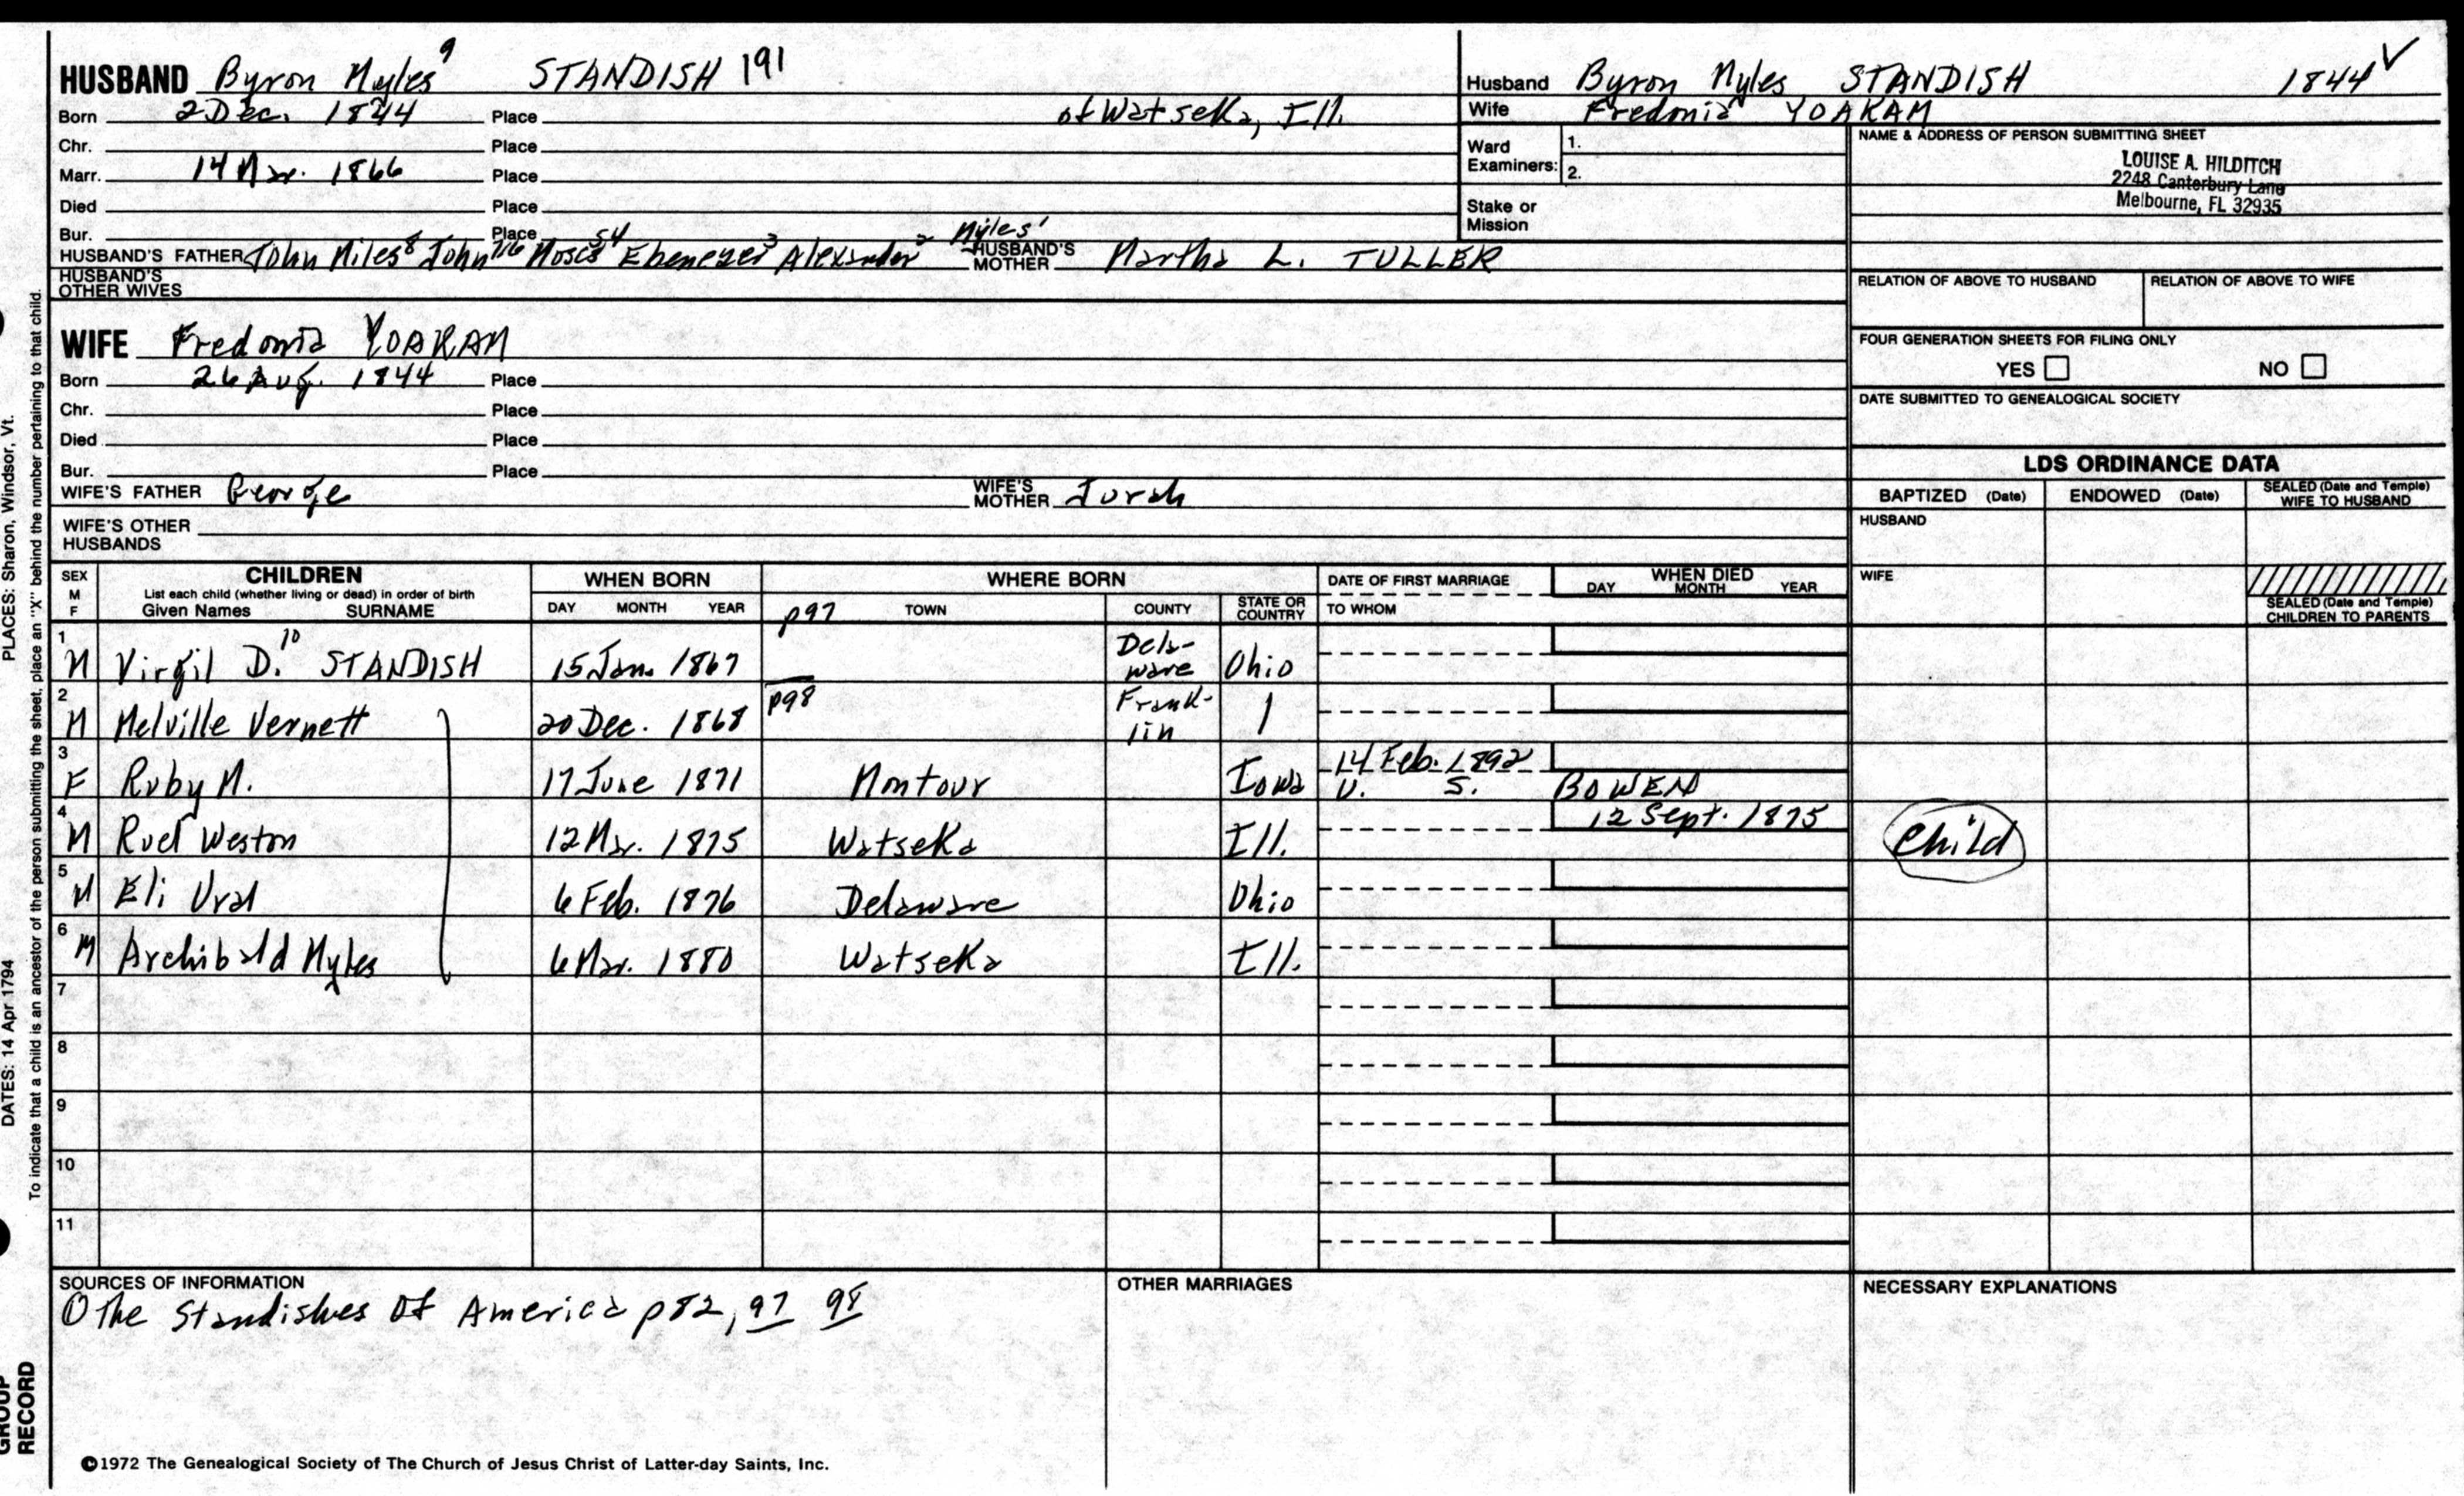 HUSBAND Byron Myles⁹ STANDISH 191
Born 2 Dec. 1844 Place of Watseka, Ill.
Chr. Place
Marr. 14 Mar. 1866 Place
Died Place
Bur. Place
HUSBAND'S FATHER John Miles⁸ John⁷ ⁶ Moses⁵ ⁴ Ebenezer³ Alexander² Myles¹ HUSBAND'S MOTHER Martha L. TULLER
HUSBAND'S OTHER WIVES
Husband Byron Myles STANDISH 1844 ✓
Wife Fredonia YOAKAM
Ward Examiners: 1.
2.
Stake or Mission
NAME & ADDRESS OF PERSON SUBMITTING SHEET
LOUISE A. HILDITCH
2248 Canterbury Lane
Melbourne, FL 32935
RELATION OF ABOVE TO HUSBAND RELATION OF ABOVE TO WIFE
FOUR GENERATION SHEETS FOR FILING ONLY
YES NO
DATE SUBMITTED TO GENEALOGICAL SOCIETY
WIFE Fredonia YOAKAM
Born 26 Aug. 1844 Place
Chr. Place
Died Place
Bur. Place
WIFE'S FATHER George WIFE'S MOTHER Jurah
WIFE'S OTHER HUSBANDS
LDS ORDINANCE DATA
BAPTIZED (Date) ENDOWED (Date) SEALED (Date and Temple) WIFE TO HUSBAND
HUSBAND
WIFE
SEALED (Date and Temple) CHILDREN TO PARENTS
SEX M F CHILDREN List each child (whether living or dead) in order of birth Given Names SURNAME
WHEN BORN DAY MONTH YEAR
WHERE BORN TOWN COUNTY STATE OR COUNTRY
DATE OF FIRST MARRIAGE TO WHOM
WHEN DIED DAY MONTH YEAR
p97
1 M Virgil D.¹⁰ STANDISH 15 Jan. 1867 Dela- ware Ohio
2 M Melville Vernett 20 Dec. 1868 p98 Frank- lin
3 F Ruby M. 17 June 1871 Montour Iowa 14 Feb. 1892 U. S. BOWEN
4 M Ruel Weston 12 Mar. 1875 Watseka Ill. 12 Sept. 1875 Child
5 M Eli Ural 6 Feb. 1876 Delaware Ohio
6 M Archibald Myles 6 Mar. 1880 Watseka Ill.
7
8
9
10
11
SOURCES OF INFORMATION
The Standishes of America p82, 97 98
OTHER MARRIAGES
NECESSARY EXPLANATIONS
©1972 The Genealogical Society of The Church of Jesus Christ of Latter-day Saints, Inc.
PLACES: Sharon, Windsor, Vt.
DATES: 14 Apr 1794
To indicate that a child is an ancestor of the person submitting the sheet, place an "X" behind the number pertaining to that child.
GROUP
RECORD